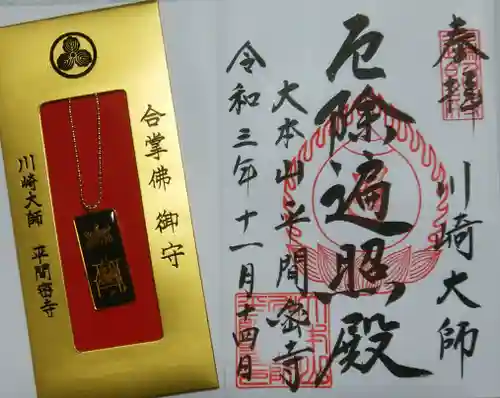 合掌佛 御守
川崎大師 平間寺
奉拝
川崎大師
厄除遍照殿
大本山平間寺
令和三年十一月十四日